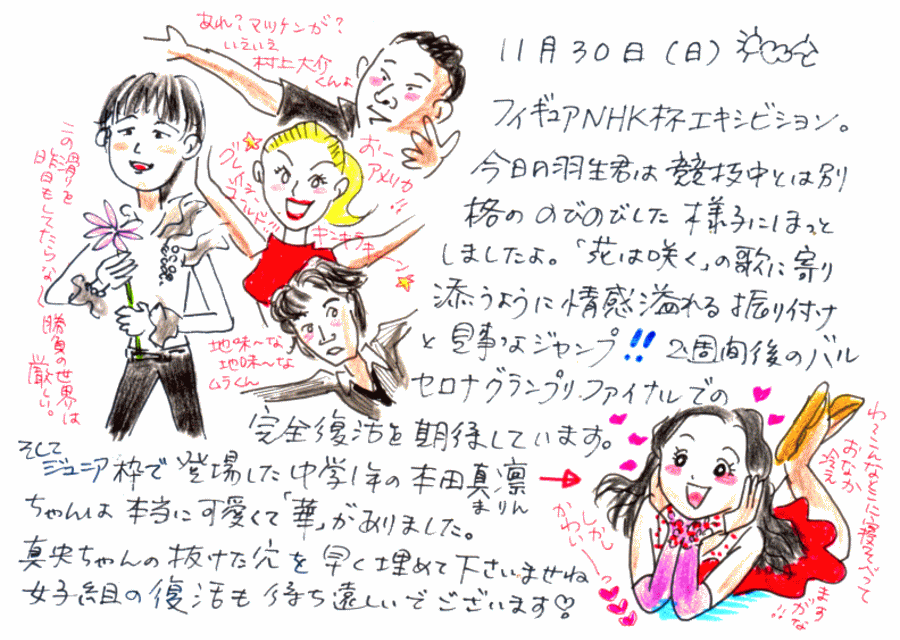 11月30日(日)
フィギュアNHK杯エキシビション。
今日の羽生君は競技中とは別
格の のびのびした 様子にほっと
しましたよ。「花は咲く」の歌に寄り
添うように情感溢れる振り付け
と見事なジャンプ!! 2週間後のバル
セロナグランプリ・ファイナルでの
完全復活を期待しています。
そして
ジュニア枠で登場した中学1年の本田真凛
まりん
ちゃんは本当に可愛くて「華」がありました。
真央ちゃんの抜けた穴を早く埋めて下さいませね
女子組の復活も待ち遠しいでございます♡
あれ?マツケンが?
いえいえ
村上大介
くんよ
おー
アメリカ!!
グレイシー
ゴールド!!
キンキラキーン
地味〜な
地味〜な
ムラくん
この滑りを
昨日もしてたらな〜
勝負の世界は
厳しい。
わ〜こんなとこに寝そべって
おなか
冷え
ますがな!!
しかし
かわい〜